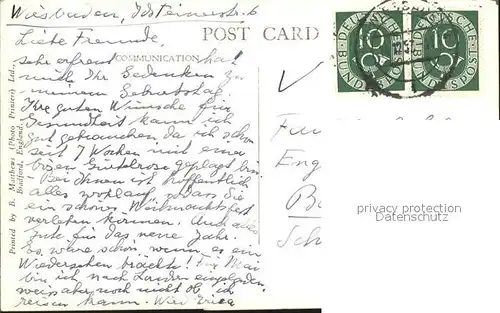 Wiesbaden, Idsteinerstr. 6
Liebe Freunde,
POST CARD
COMMUNICATION
sehr erfreut hat
mich Ihr Gedenken zu
meinem Geburtstag.
Ihre guten Wünsche für
Gesundheit kann ich
gut gebrauchen da ich schon
seit 7 Wochen mit einer
bösen Gürtelrose geplagt bin.
Bei Ihnen ist hoffentlich
alles wohlauf, daß Sie
ein schönes Weihnachtsfest
verleben können. Auch alles
gute für das neue Jahr.
wäre schön wenn es ein
Wiedersehen brächte! Für Mai
bin ich nach London eingeladen,
weiß aber noch nicht ob ich
reisen kann. Wie
Printed by B. Matthews (Photo Printers) Ltd.,
Bradford, England.
DEUTSCHE BUNDESPOST
10
DEUTSCHE BUNDESPOST
10
Eng
Sch
privacy protection
Datenschutz